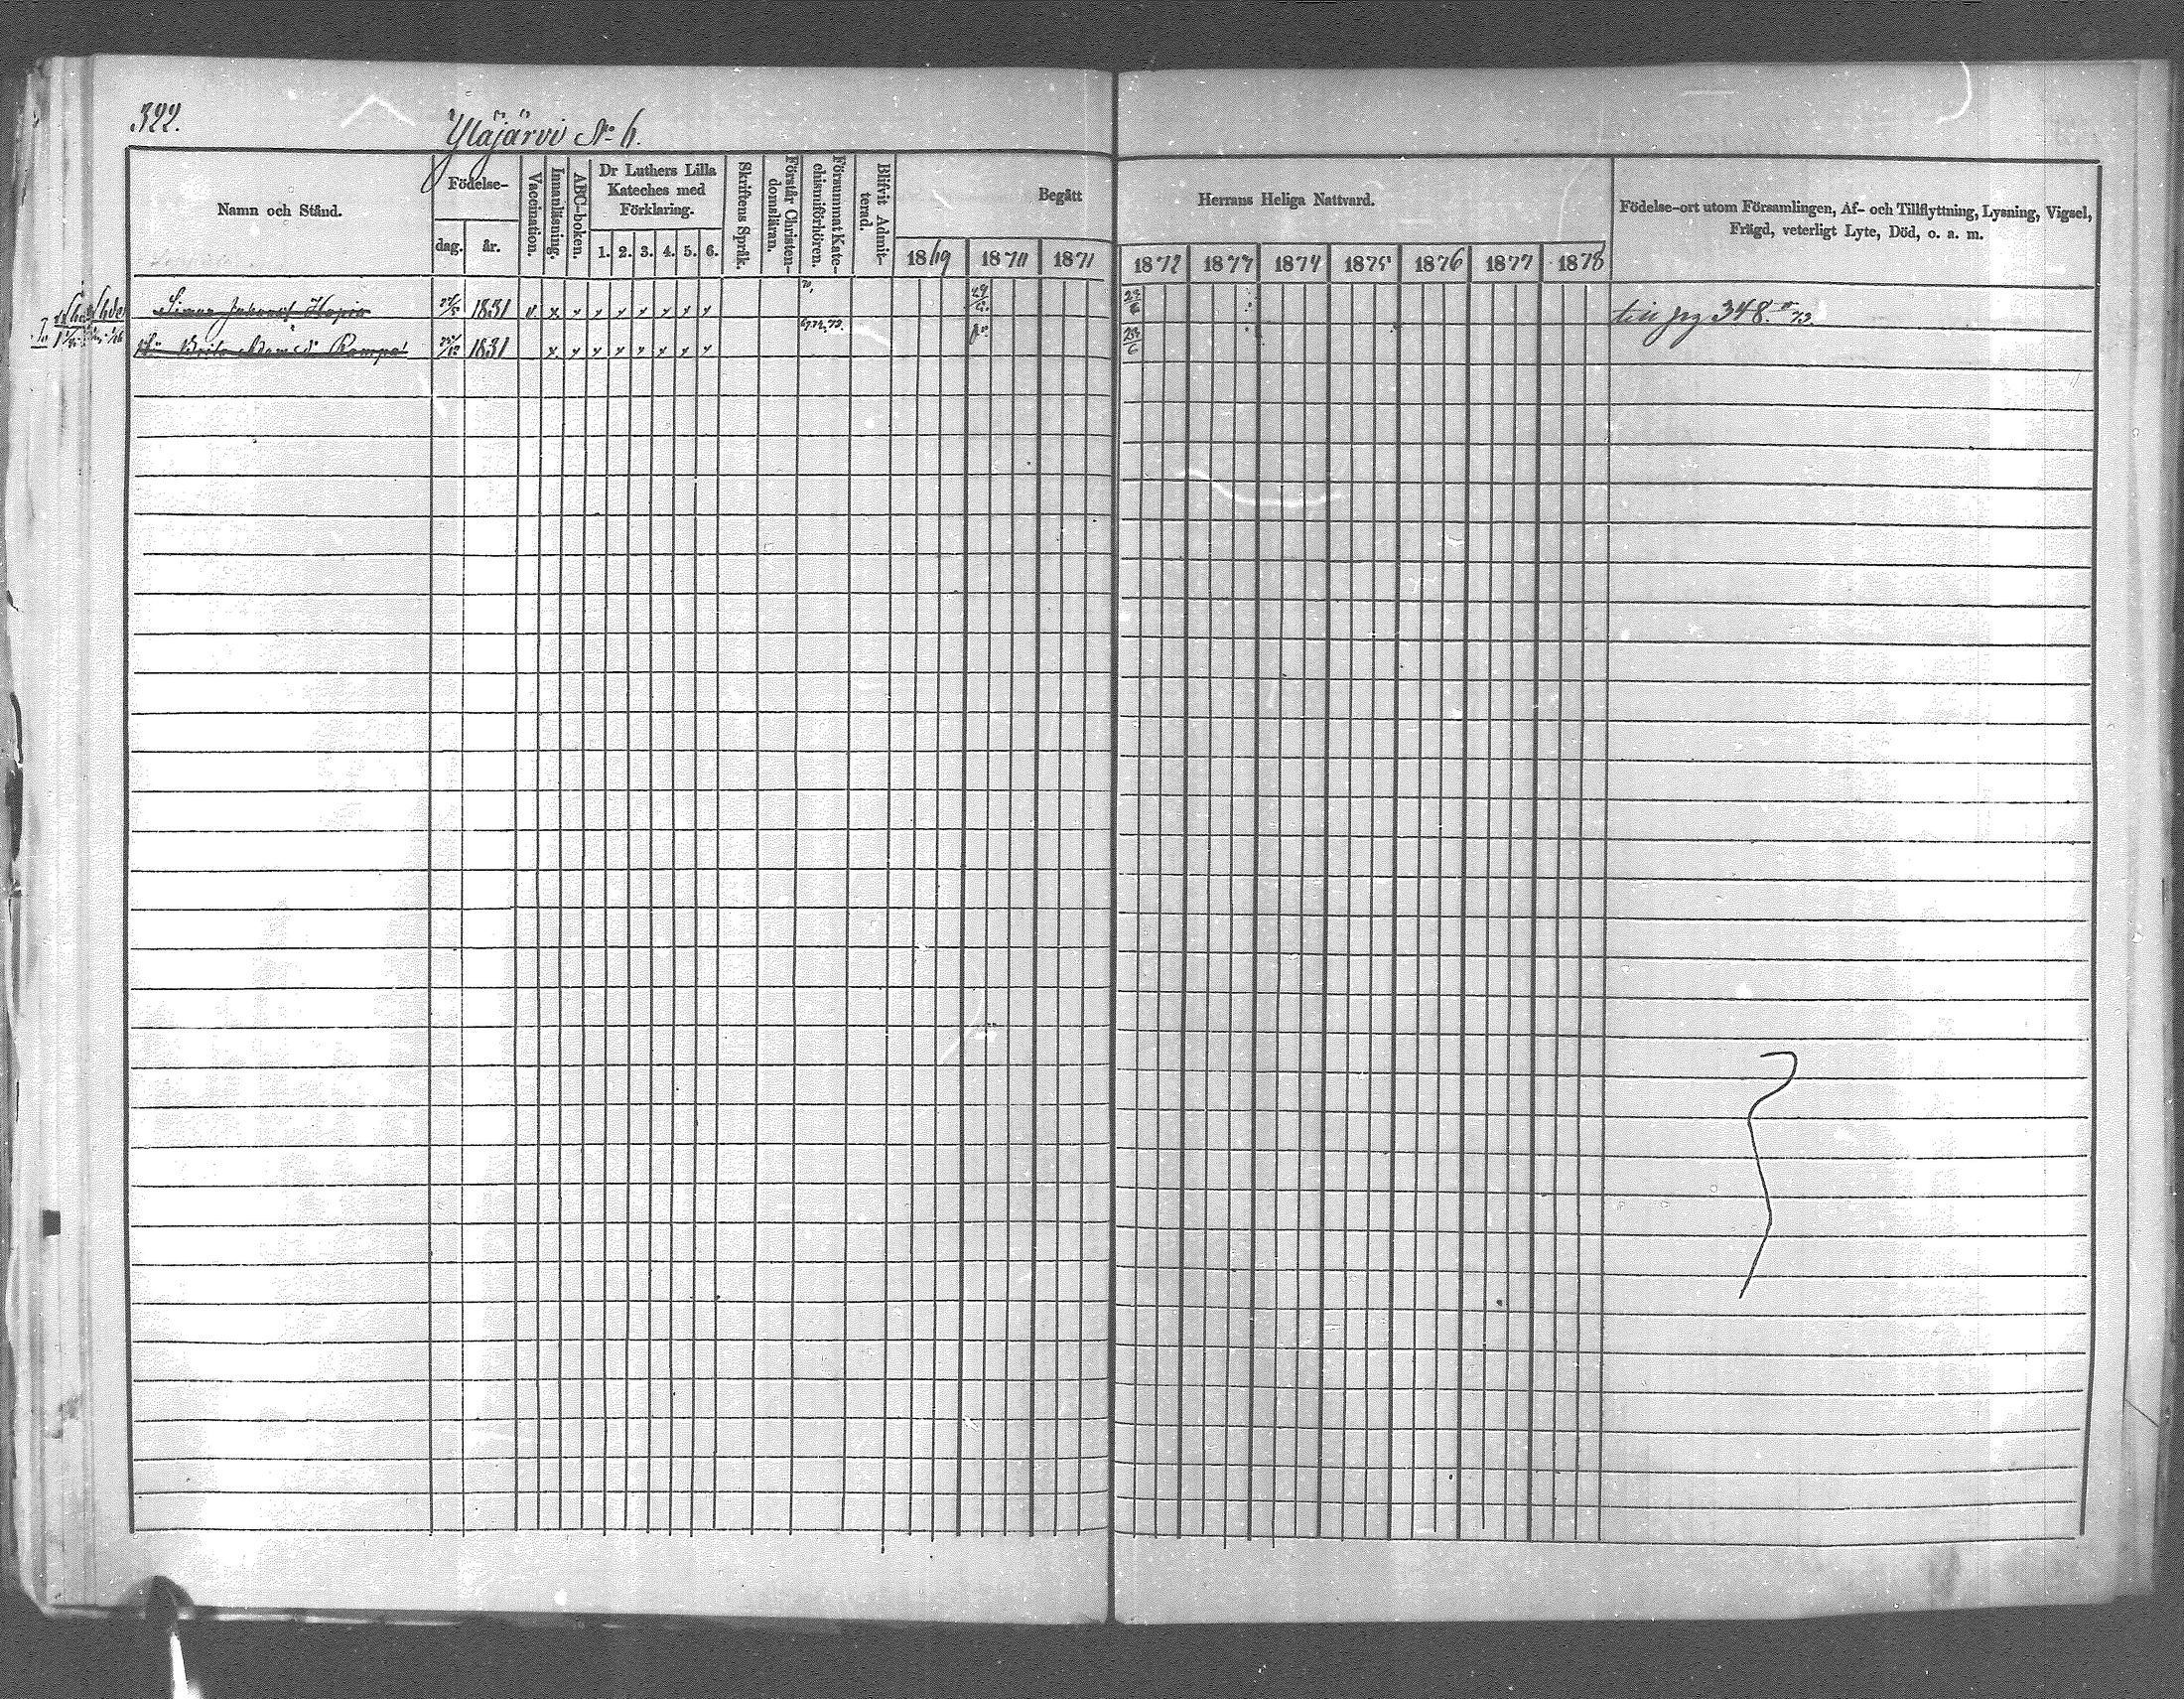 322.
Yläjärvi No 6.
Namn och Stånd.
Födelse-
dag.
år.
Vaccination.
Innanläsning.
ABC-boken.
Dr Luthers Lilla
Kateches med
Förklaring.
1. 2. 3. 4. 5. 6.
Skriftens Språk.
Förstår Christen-
domsläran.
Försummat Kate-
chismiförhören.
Blifvit Admit-
terad.
Begått
Herrans Heliga Nattvard.
1869 1870 1871 1872 1873 1874 1875 1876 1877 1878
Födelse-ort utom Församlingen, Af- och Tillflyttning, Lysning, Vigsel,
Frägd, veterligt Lyte, Död, o. a. m.
Simon Hapia 1831 v x x x x x x x x
till pg 348. 73.
Brita Adamsd. Rampa 1831 x x x x x x x x